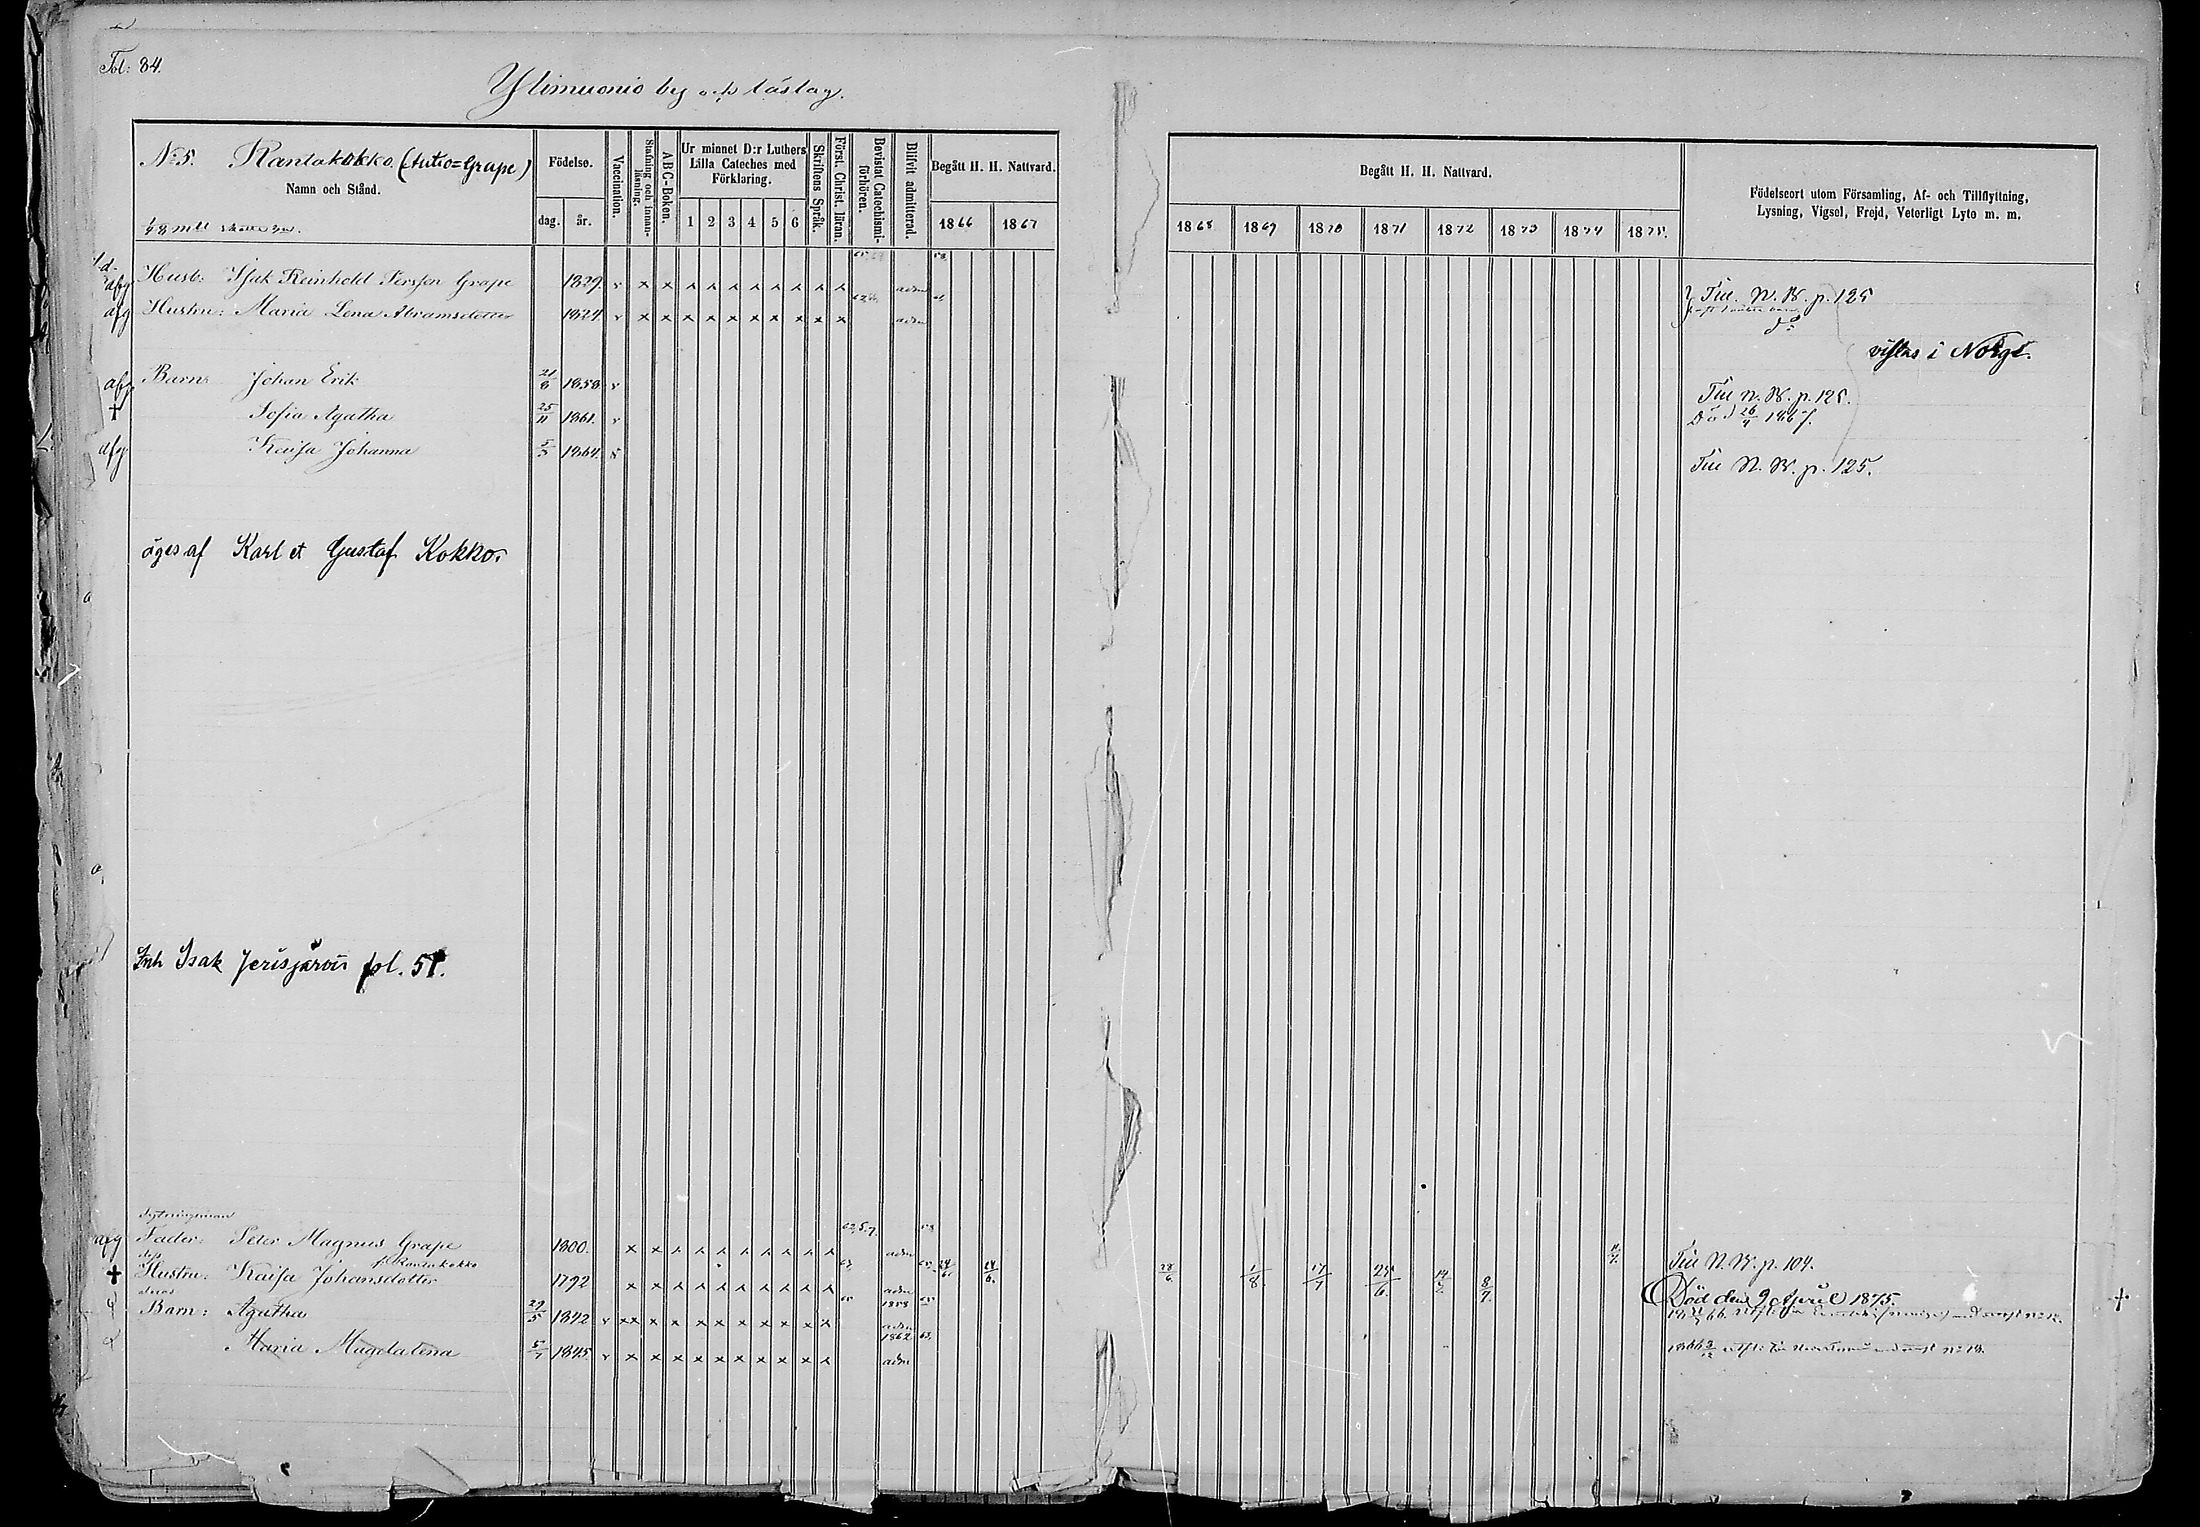 Fol: 84.
Ylimuonio by och låslag.
No 5. Rantakokko. (Autio=Grape)
Namn och Stånd.
Födelse.
dag. år.
Vaccination.
Stafning och innanläsning.
ABC-Boken.
Ur minnet D:r Luthers Lilla Cateches med Förklaring.
1 2 3 4 5 6
Skriftens Språk.
Först. Christ. läran.
Bevistat Catechismiförhören.
Blifvit admitterad.
Begått H. H. Nattvard.
1866 1867
Begått H. H. Nattvard.
1868 1869 1870 1871 1872 1873 1874 1875.
Födelseort utom Församling, Af- och Tillflyttning,
Lysning, Vigsel, Frejd, Veterligt Lyte m. m.
afg Husb: Isak Reinhold Persson Grape 1829. v x x adm Till N. B. p. 125
afg Hustru: Maria Lena Abramsdotter 1824. v x x x x x x x x x x adm do
vistas i Norge.
afg Barn: Johan Erik 21/8 1858 v Till N. B. p. 125.
† Sofia Agatha 25/11 1861. v Död 26/4 1867.
afg Kaisa Johanna 5/5 1864. v Till N. B. p. 125.
äges af Karl et Gustaf Kokko.
Inh Isak Jerisjärvi fol. 51.
afg Fader: Peter Magnus Grape 1800. x x adm Till N. B. p. 104.
f. Rantakokko
† Hustru: Kaisa Johansdotter 1792 x x adm 24/6. 24/6. 28/6. 1/8. 17/7 25/6. 14/7 8/7. Död den 9 April 1875. †
deras
Barn: Agatha 29/5 1842 v x x x x x x x x x x 1858 adm
Maria Magdalena 5/7 1845 v x x x x x x x x x 1862 adm